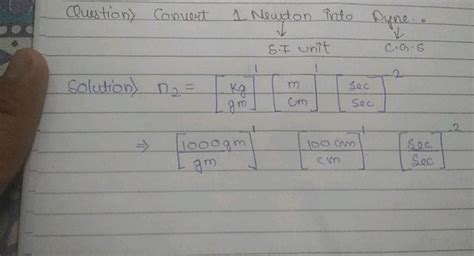 Question) Convert 1 Newton into Dyne..
↓ ↓
S.I unit C.G.S
Solution) n₂ = [kg/gm]¹ [m/cm]¹ [sec/sec]⁻²
⇒ [1000gm/gm]¹ [100cm/cm]¹ [sec/sec]⁻²